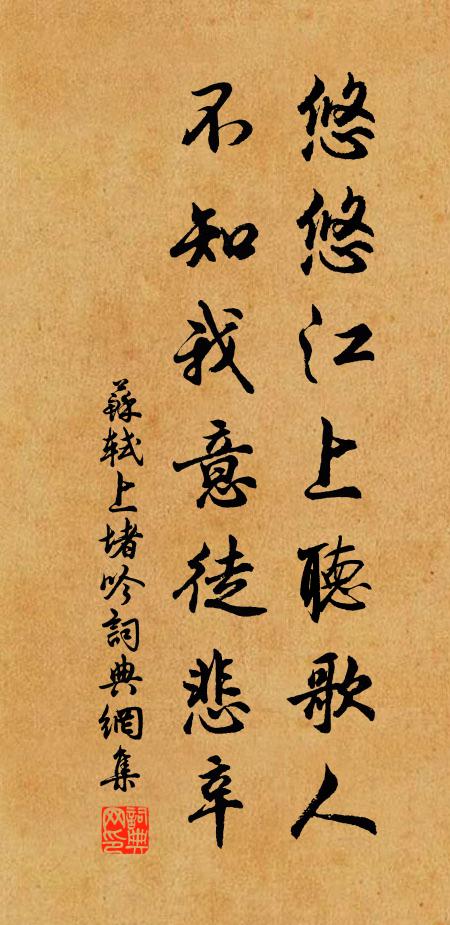 悠悠江上聽歌人
不知我意徒悲辛
蘇軾上堵吟詞典網集
詞典网印